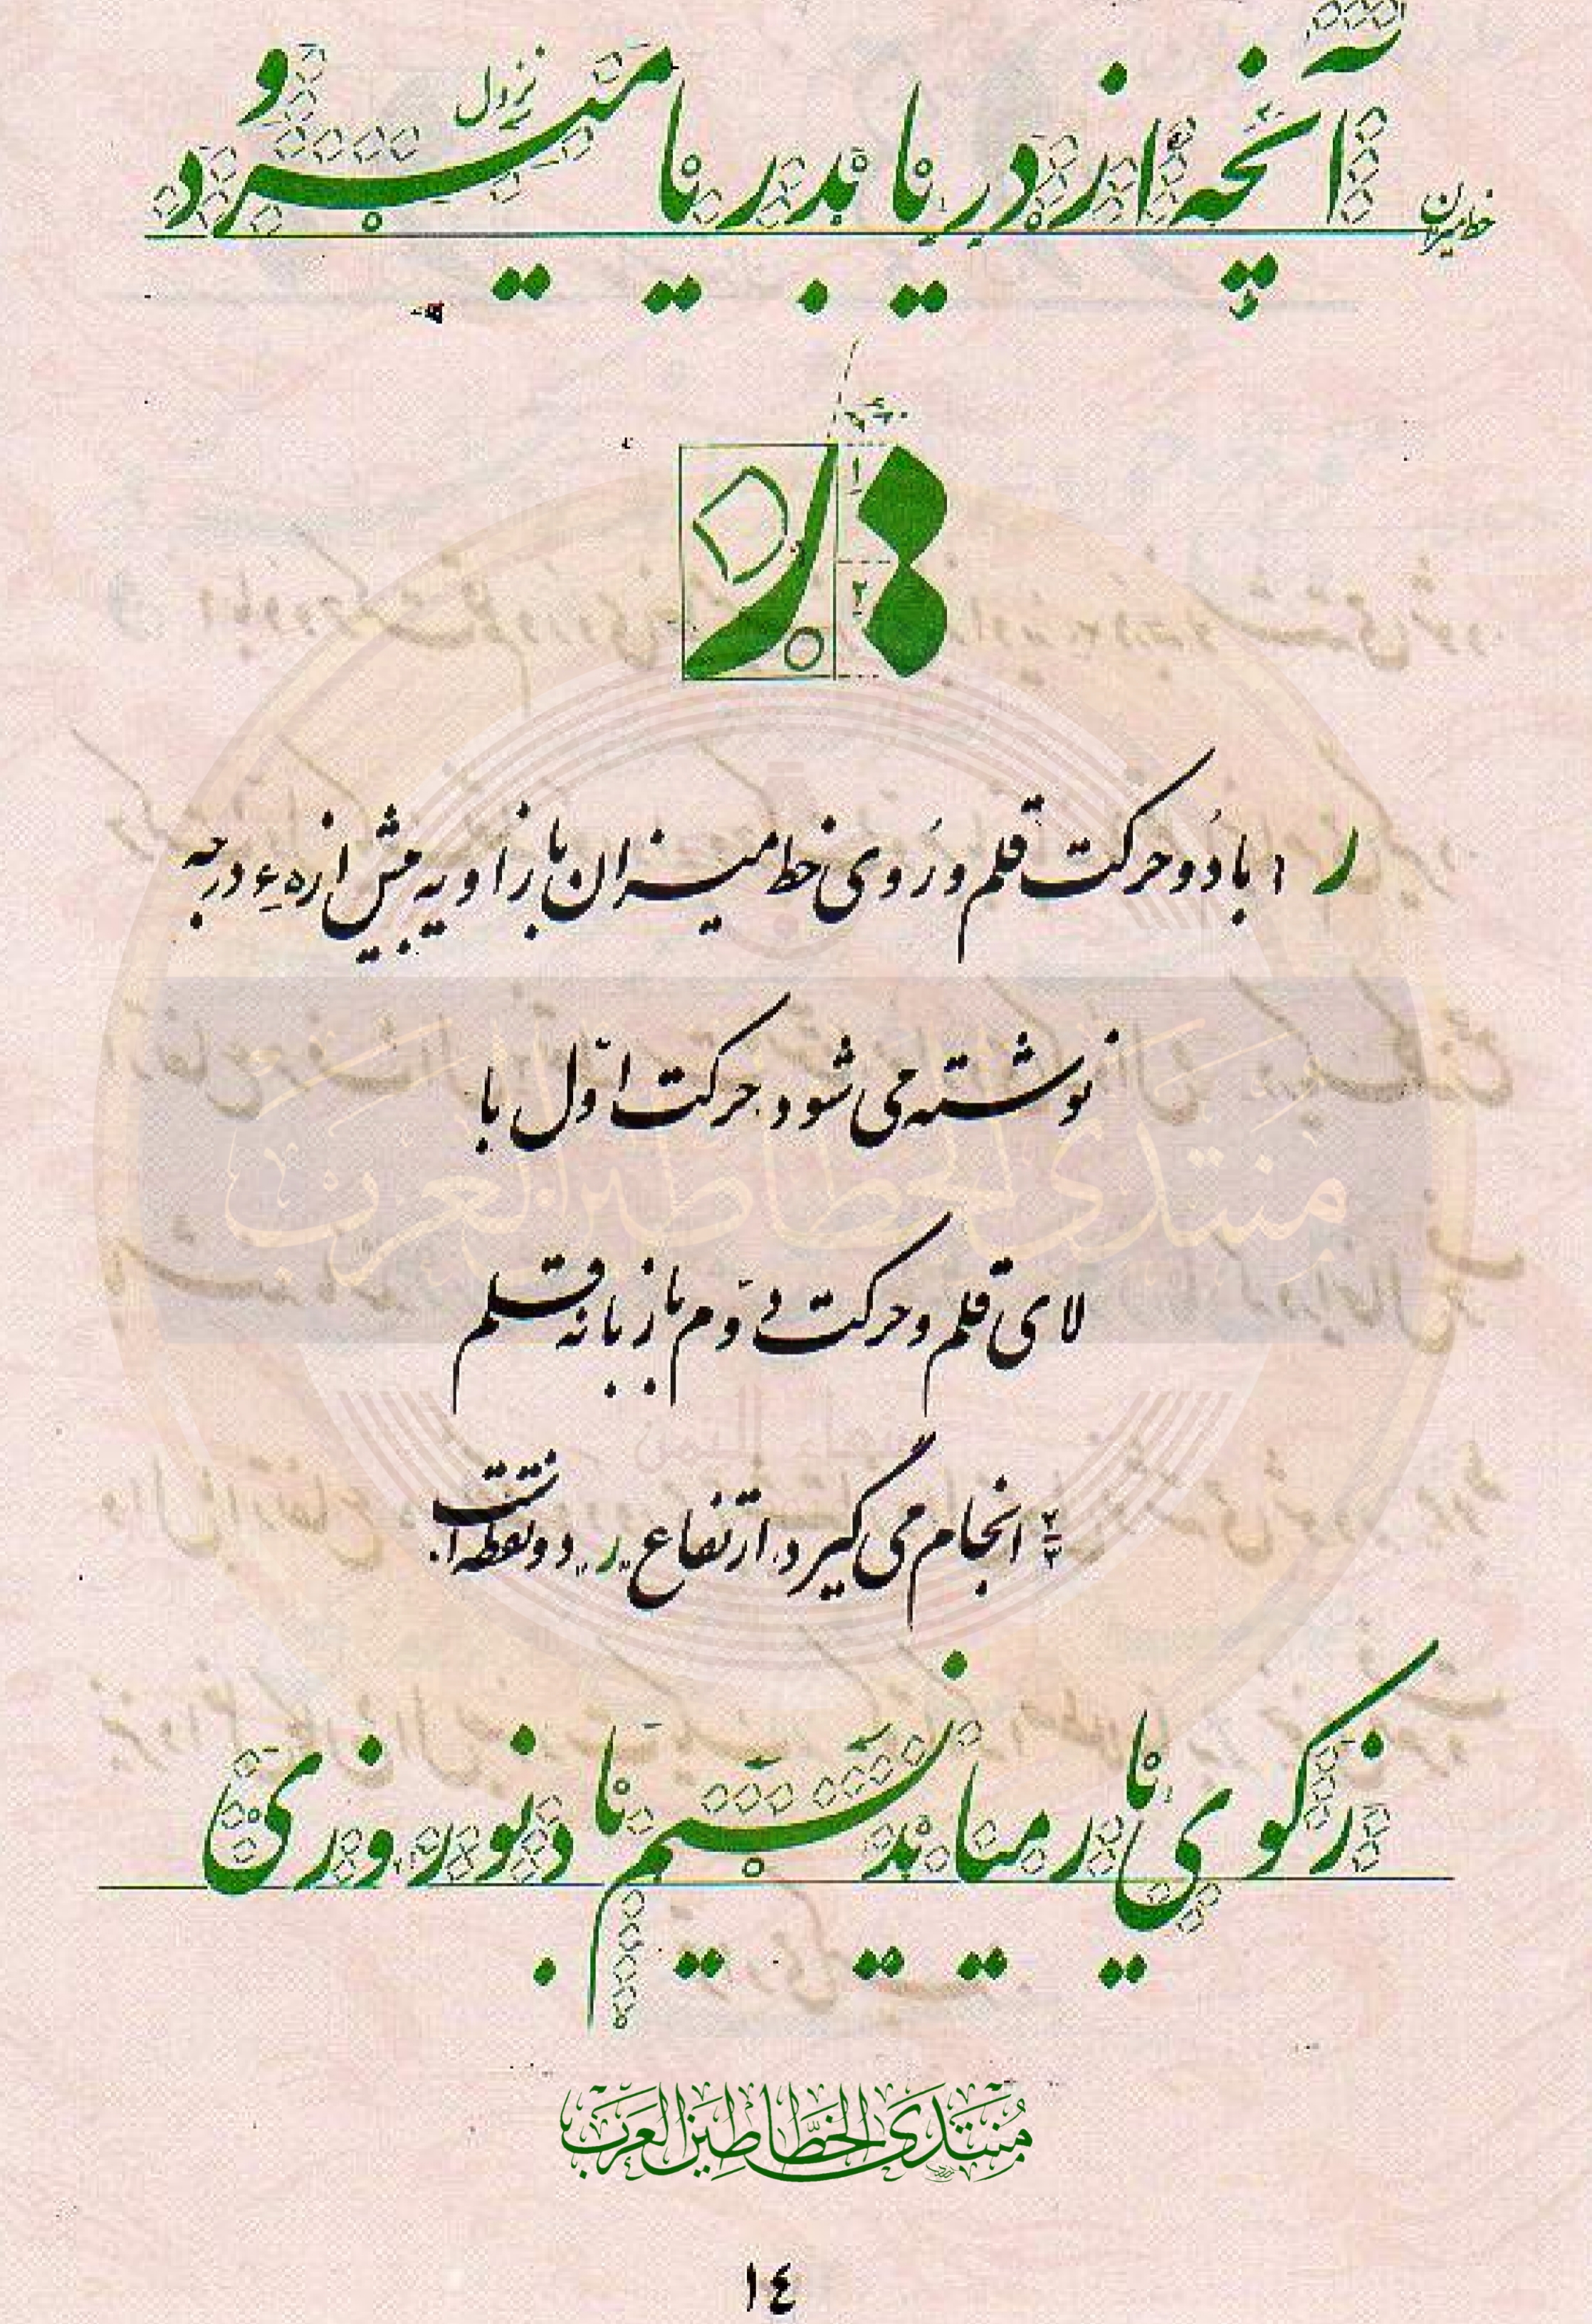 آنچه از دریا بدریا میرود
نزول
خط میزان
۱
۲
ر ، با دو حرکت قلم و روی خط میزان با زاویه بیش از ۶۵ درجه
نوشته می شود. حرکت اوّل با
لای قلم و حرکت دوّم با زبانه قلم
۲/۳ انجام می گیرد. ارتفاع "ر" دو نقطه است.
ز کوی یار میاید نسیم باد نوروزی
منتدى الخطاطين العرب
منتدى الخطاطين العرب
١٤